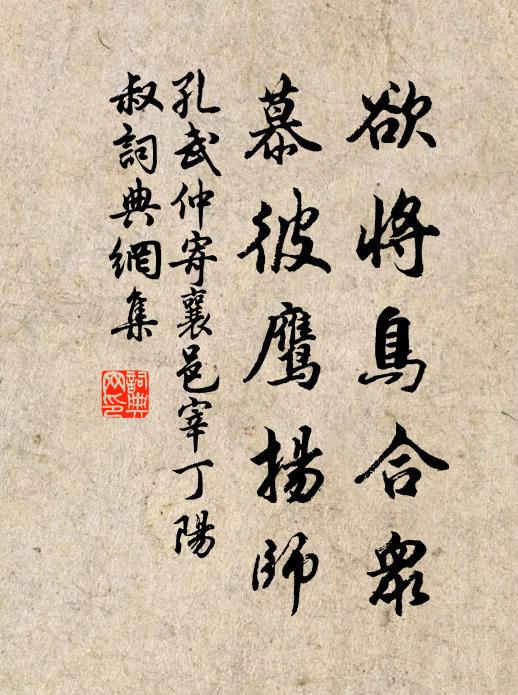 欲將鳥合衆
慕彼鷹揚師
孔武仲寄襄邑宰丁陽
叔詞典網集
詞典
网印